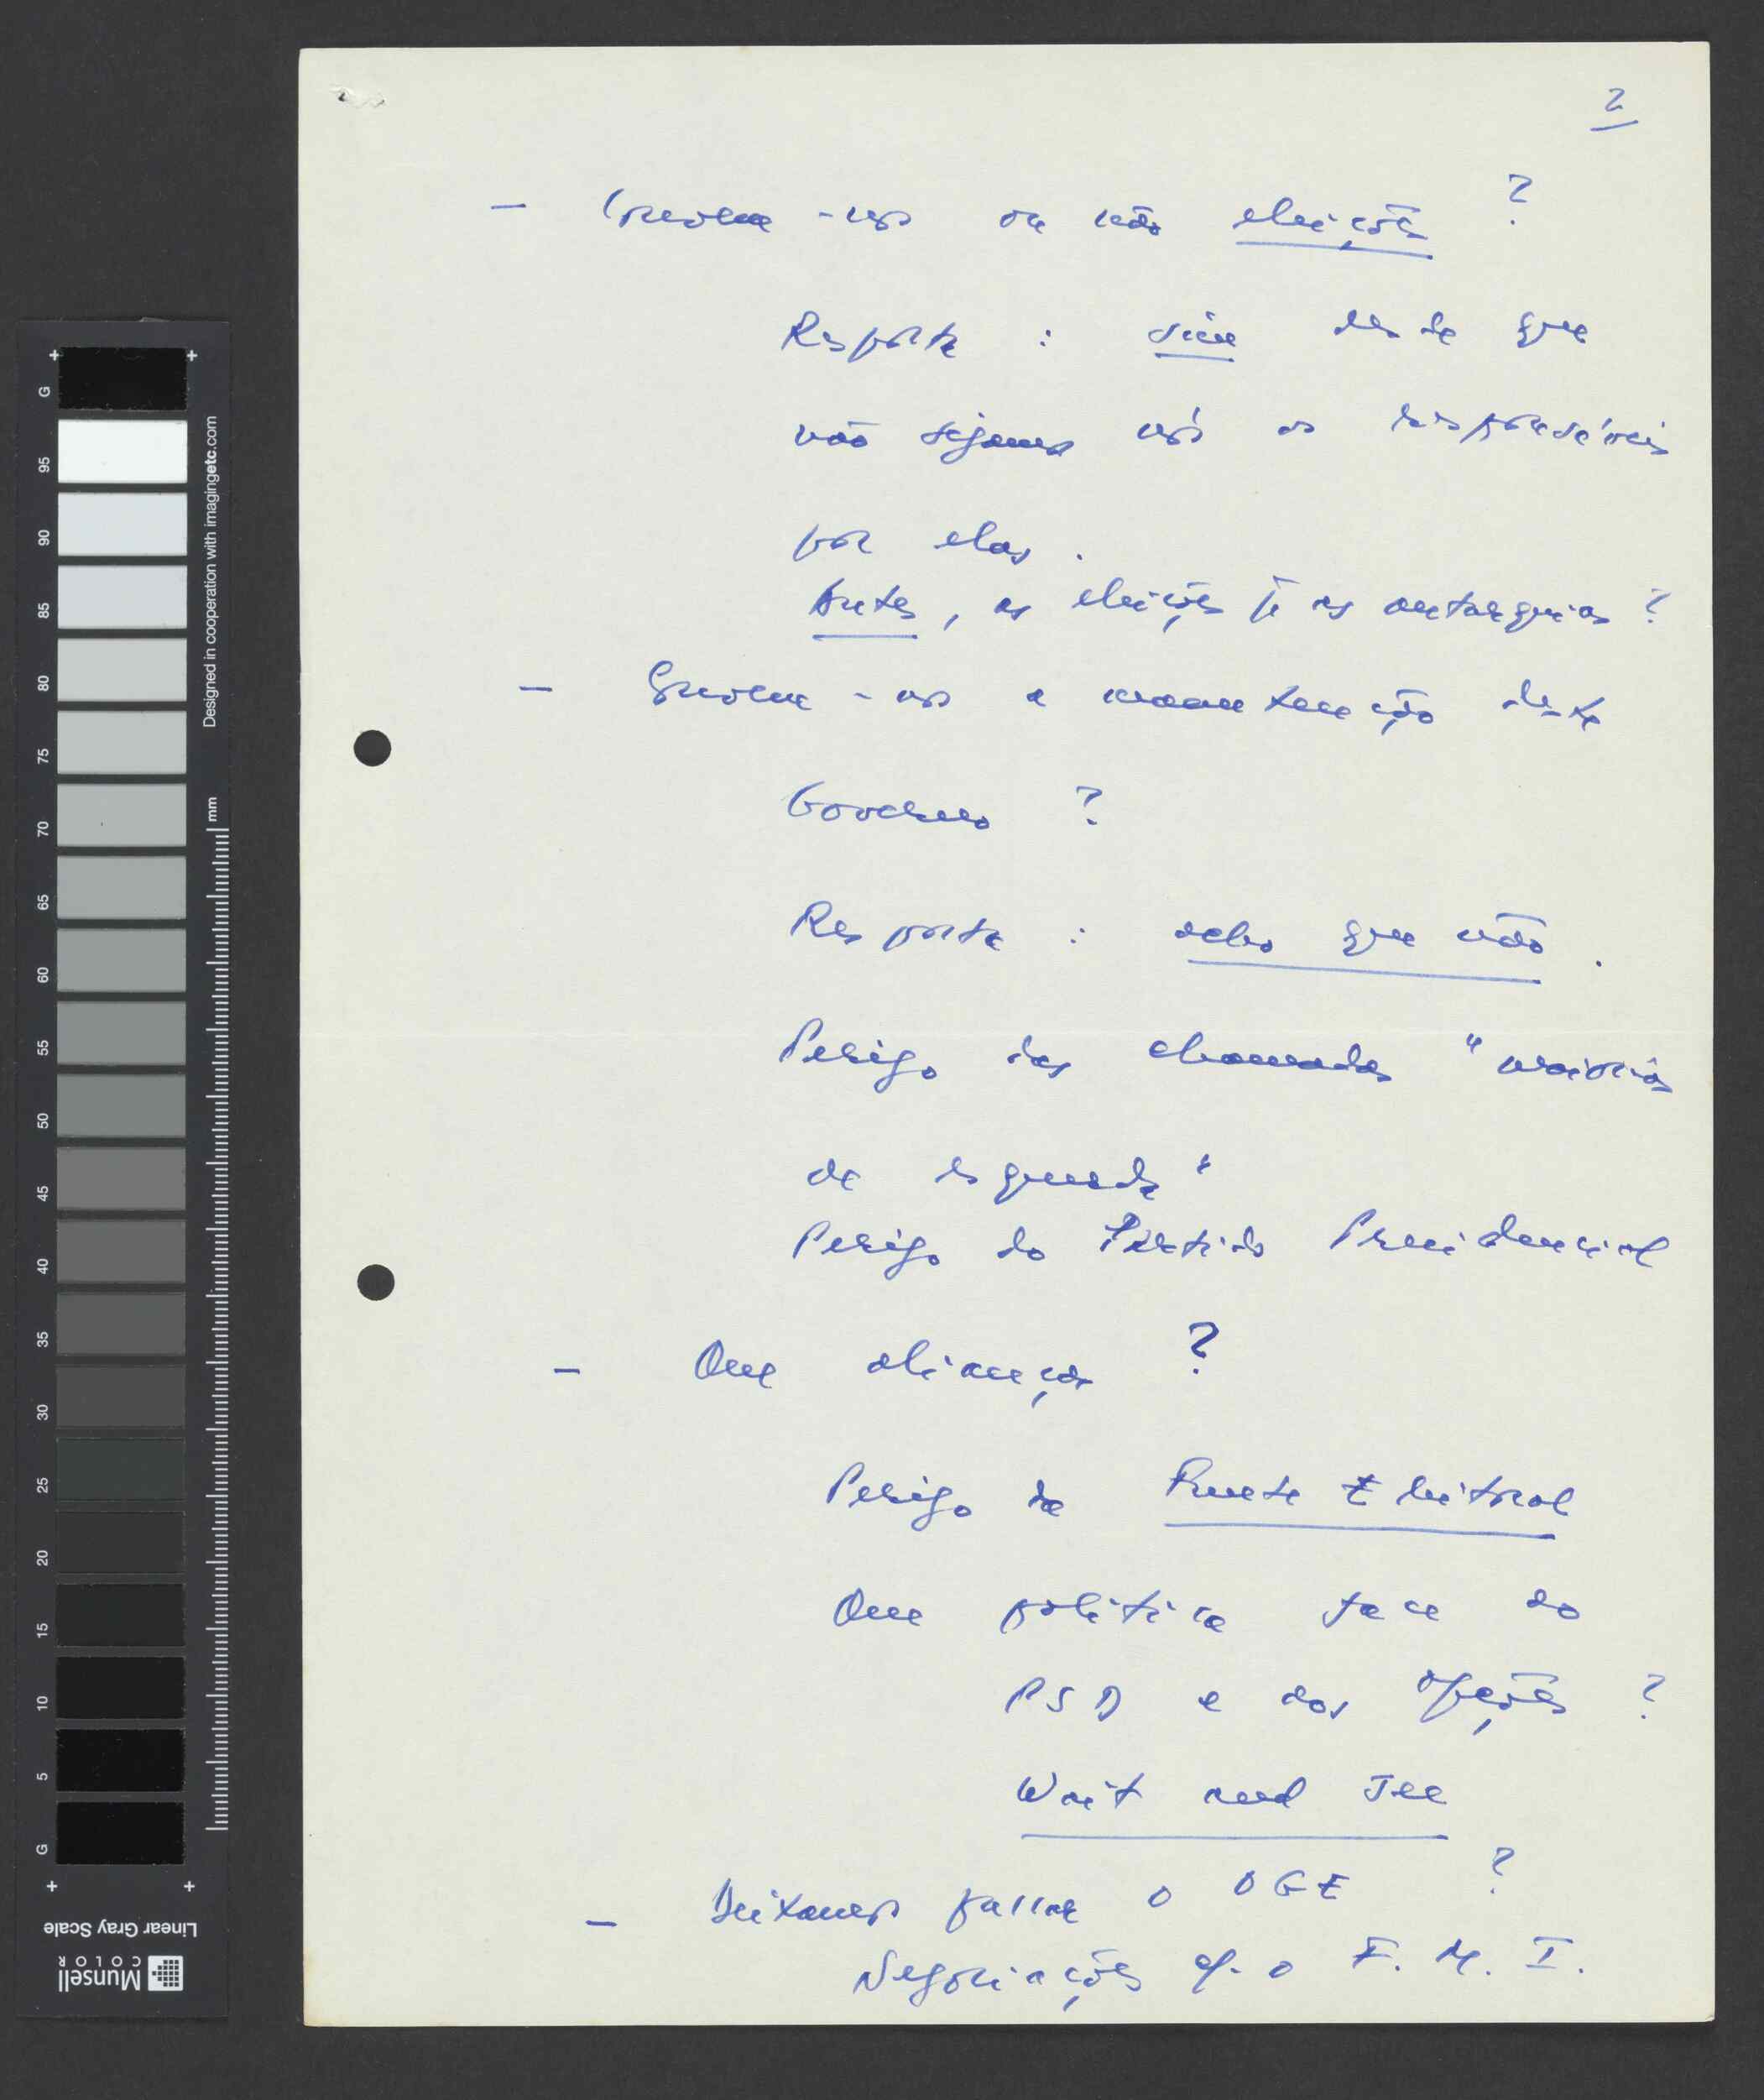 2
- Convem-nos ou não eleições ?
Resposta : sim desde que
não sejamos nós os responsáveis
por elas .
Antes , as eleições p.ª as autarquias ?
- Convem-nos a manutenção deste
Governo ?
Resposta : acho que não .
Perigo das chamadas " maiorias
de esquerda "
Perigo do Partido Presidencial
- Que alianças ?
Perigo da Frente Eleitoral
Que política face ao
PSD e aos opções ?
Wait and See
- Deixamos passar o OGE ?
Negociações c/. o F. M. I.
G 95 90 85 80 75 70 65 60 55 50 45 40 35 30 25 20 15 10 5 G
Designed in cooperation with imagingetc.com
mm
Linear Gray Scale
Munsell
COLOR